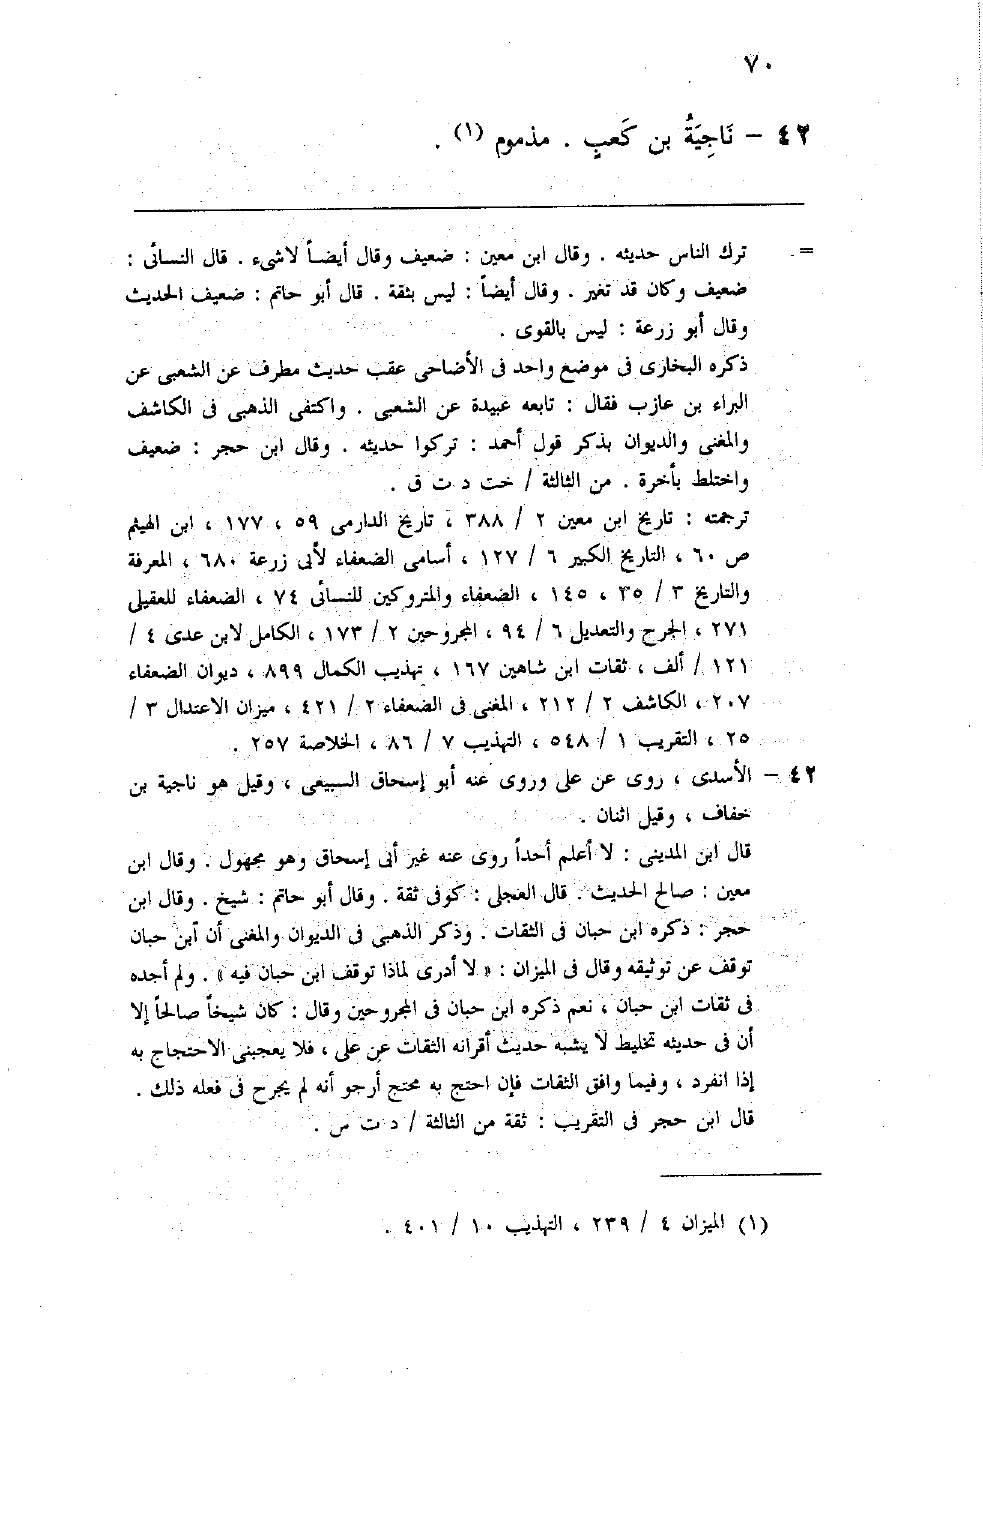 ٧٠
٤٢ – نَاجِيَةُ بن كَعبٍ . مذموم (١) .
= ترك الناس حديثه . وقال ابن معين : ضعيف وقال أيضاً لاشىء . قال النسائى :
ضعيف وكان قد تغير . وقال أيضاً : ليس بثقة . قال أبو حاتم : ضعيف الحديث
وقال أبو زرعة : ليس بالقوى .
ذكره البخارى فى موضع واحد فى الأضاحى عقب حديث مطرف عن الشعبى عن
البراء بن عازب فقال : تابعه عبيدة عن الشعبى . واكتفى الذهبى فى الكاشف
والمغنى والديوان بذكر قول أحمد : تركوا حديثه . وقال ابن حجر : ضعيف
واختلط بأخرة . من الثالثة / خت د ت ق .
ترجمته : تاريخ ابن معين ٢ / ٣٨٨ ، تاريخ الدارمى ٥٩ ، ١٧٧ ، ابن الهيثم
ص ٦٠ ، التاريخ الكبير ٦ / ١٢٧ ، أسامى الضعفاء لأبى زرعة ٦٨٠ ، المعرفة
والتاريخ ٣ / ٣٥ ، ١٤٥ ، الضعفاء والمتروكين للنسائى ٧٤ ، الضعفاء للعقيلى
٢٧١ ، الجرح والتعديل ٦ / ٩٤ ، المجروحين ٢ / ١٧٣ ، الكامل لابن عدى ٤ /
١٢١ / ألف ، ثقات ابن شاهين ١٦٧ ، تهذيب الكمال ٨٩٩ ، ديوان الضعفاء
٢٠٧ ، الكاشف ٢ / ٢١٢ ، المغنى فى الضعفاء ٢ / ٤٢١ ، ميزان الاعتدال ٣ /
٢٥ ، التقريب ١ / ٥٤٨ ، التهذيب ٧ / ٨٦ ، الخلاصة ٢٥٧ .
٤٢ – الأسدى ، روى عن على وروى عنه أبو إسحاق السبيعى ، وقيل هو ناجية بن
خفاف ، وقيل اثنان .
قال ابن المدينى : لا أعلم أحداً روى عنه غير أبى إسحاق وهو مجهول . وقال ابن
معين : صالح الحديث . قال العجلى : كوفى ثقة . وقال أبو حاتم : شيخ . وقال ابن
حجر : ذكره ابن حبان فى الثقات . وذكر الذهبى فى الديوان والمغنى أن أبن حبان
توقف عن توثيقه وقال فى الميزان : « لا أدرى لماذا توقف ابن حبان فيه » . ولم أجده
فى ثقات ابن حبان ، نعم ذكره ابن حبان فى المجروحين وقال : كان شيخاً صالحاً إلا
أن فى حديثه تخليط لا يشبه حديث أقرانه الثقات عن على ، فلا يعجبنى الاحتجاج به
إذا انفرد ، وفيما وافق الثقات فإن احتج به محتج أرجو أنه لم يجرح فى فعله ذلك .
قال ابن حجر فى التقريب : ثقة من الثالثة / د ت س .
(١) الميزان ٤ / ٢٣٩ ، التهذيب ١٠ / ٤٠١ .